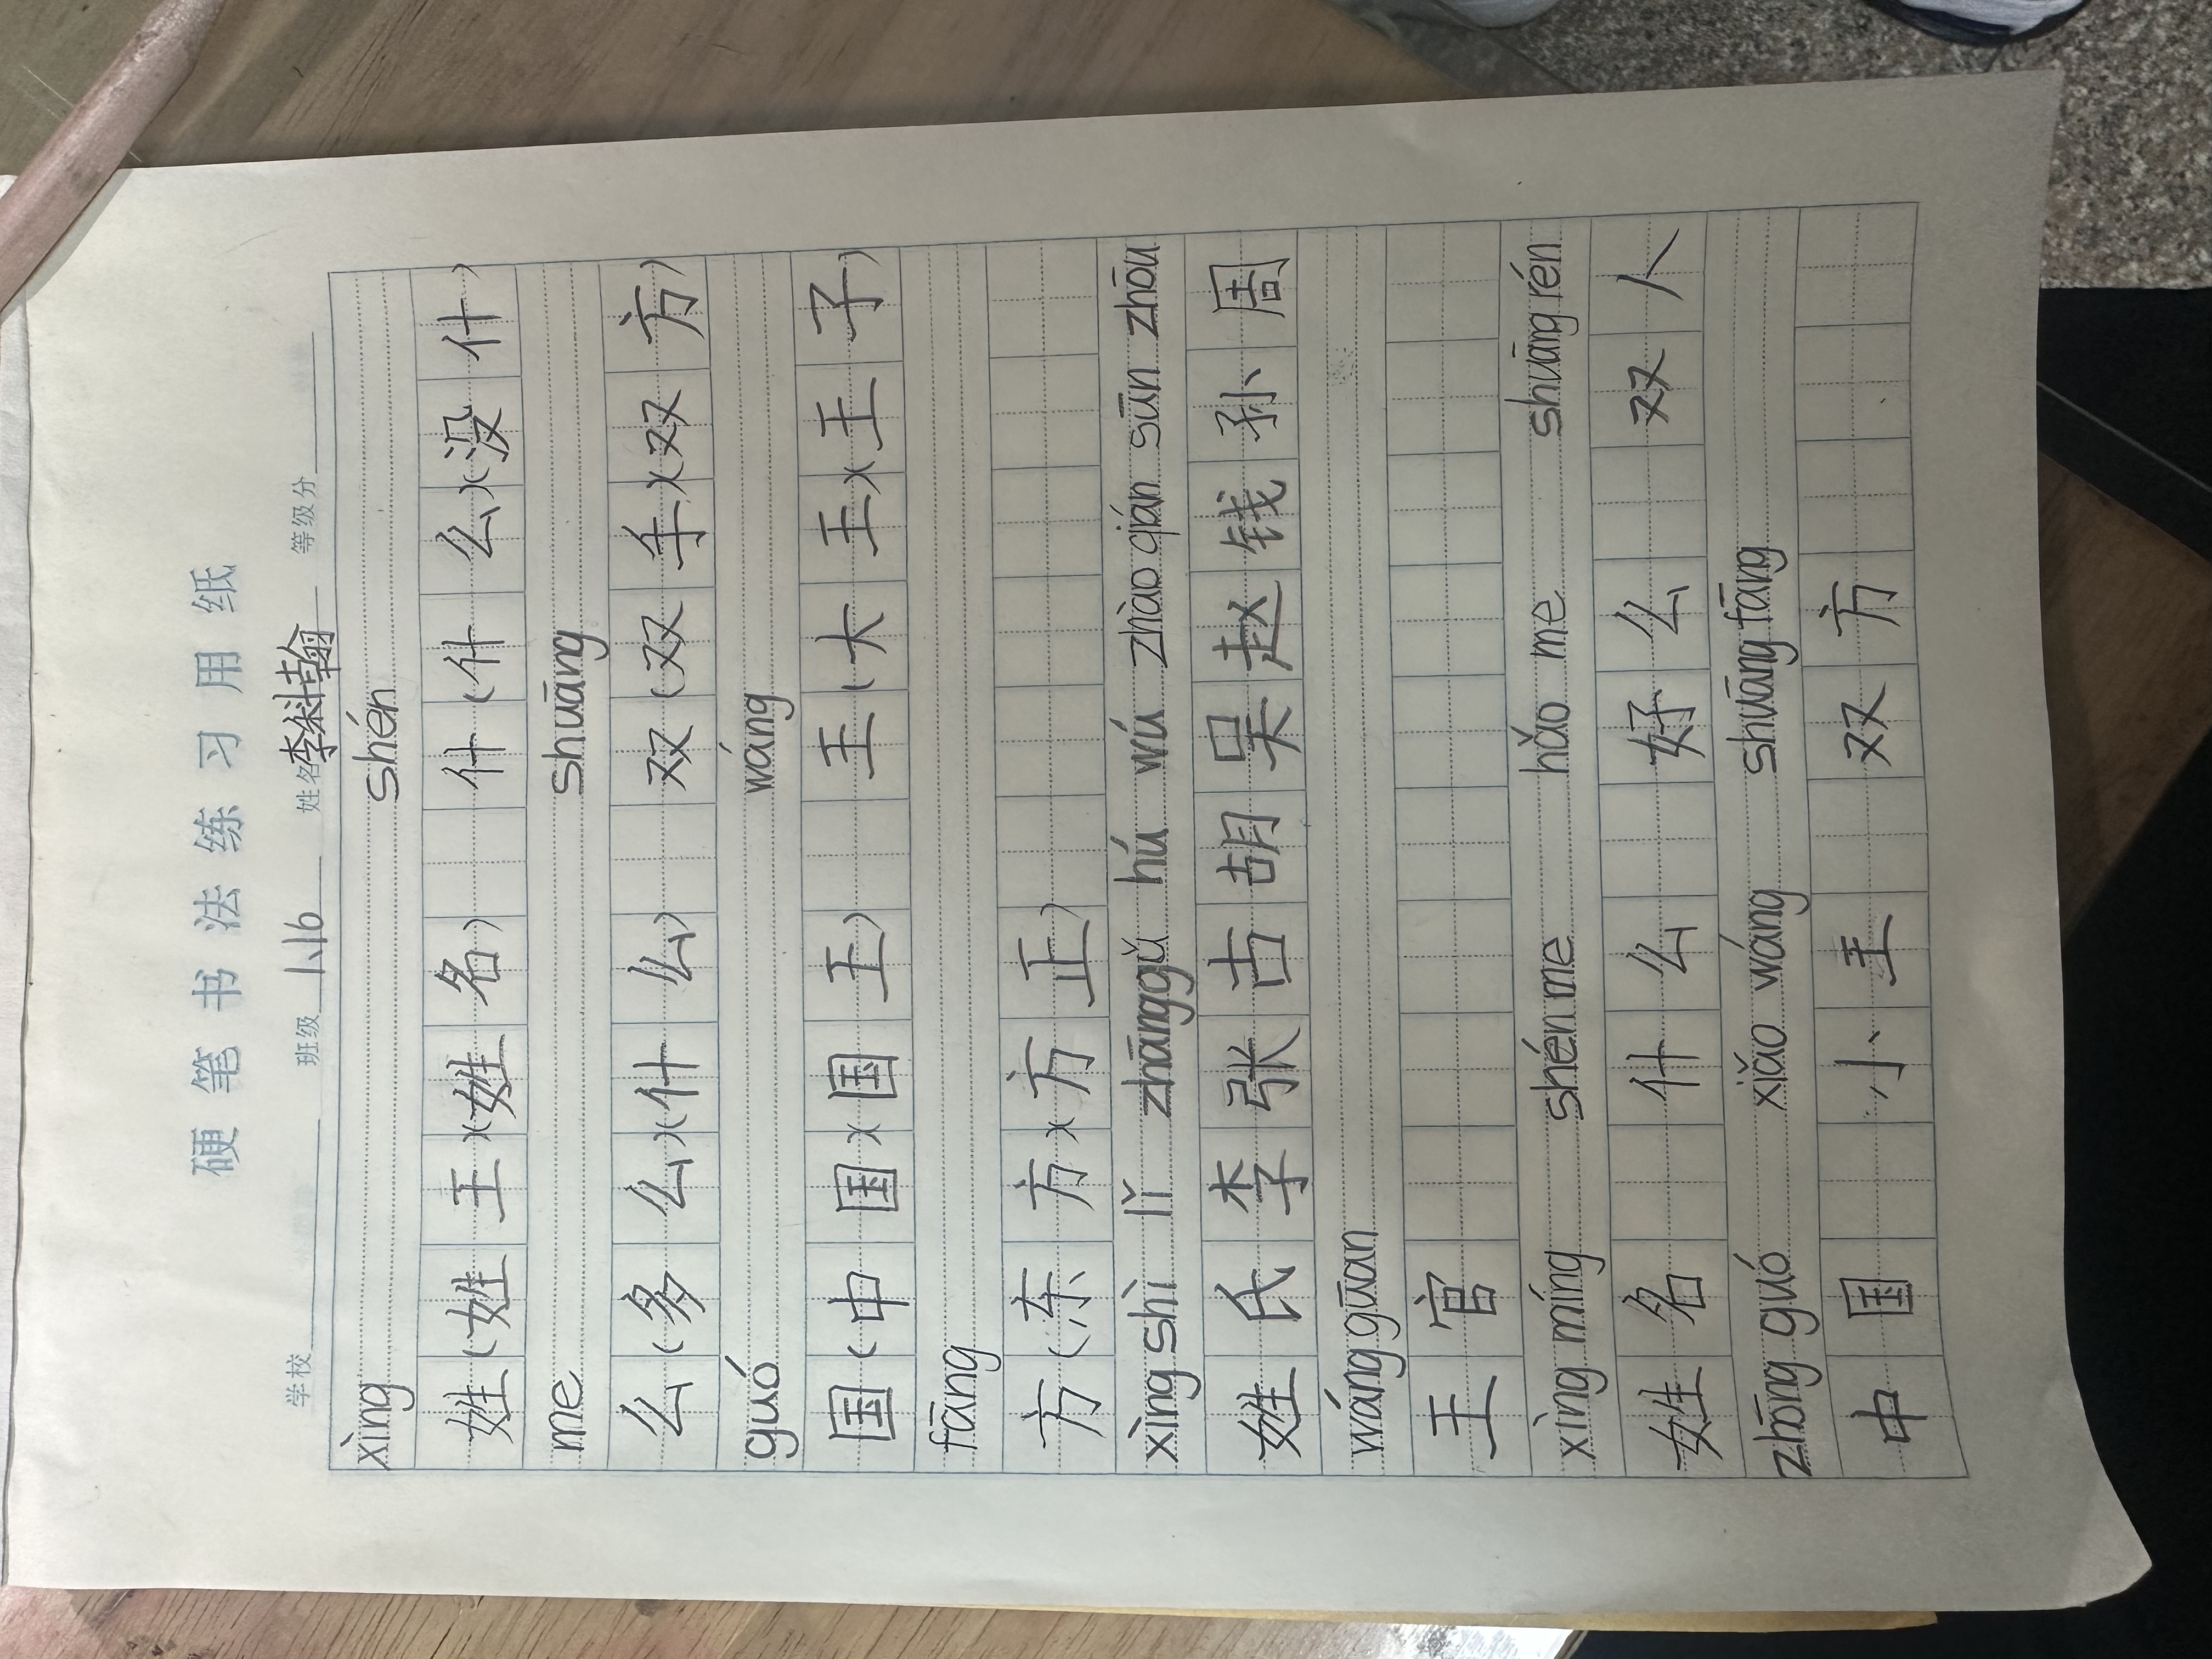 硬笔书法练习用纸
学校 班级 1.16 姓名 李澍翰 等级分
xìng shén
姓(姓王)(姓名) 什(什么)(没什)
me shuāng
么(多么)(什么) 双(双手)(双方)
guó wáng
国(中国)(国王) 王(大王)(王子)
fāng
方(东方)(方正)
xìng shì lǐ zhāng gǔ hú wú zhào qián sūn zhōu
姓氏李张古胡吴赵钱孙周
wáng guān
王官
xìng míng shén me hǎo me shuāng rén
姓名 什么 好么 双人
zhōng guó xiǎo wáng shuāng fāng
中国 小王 双方